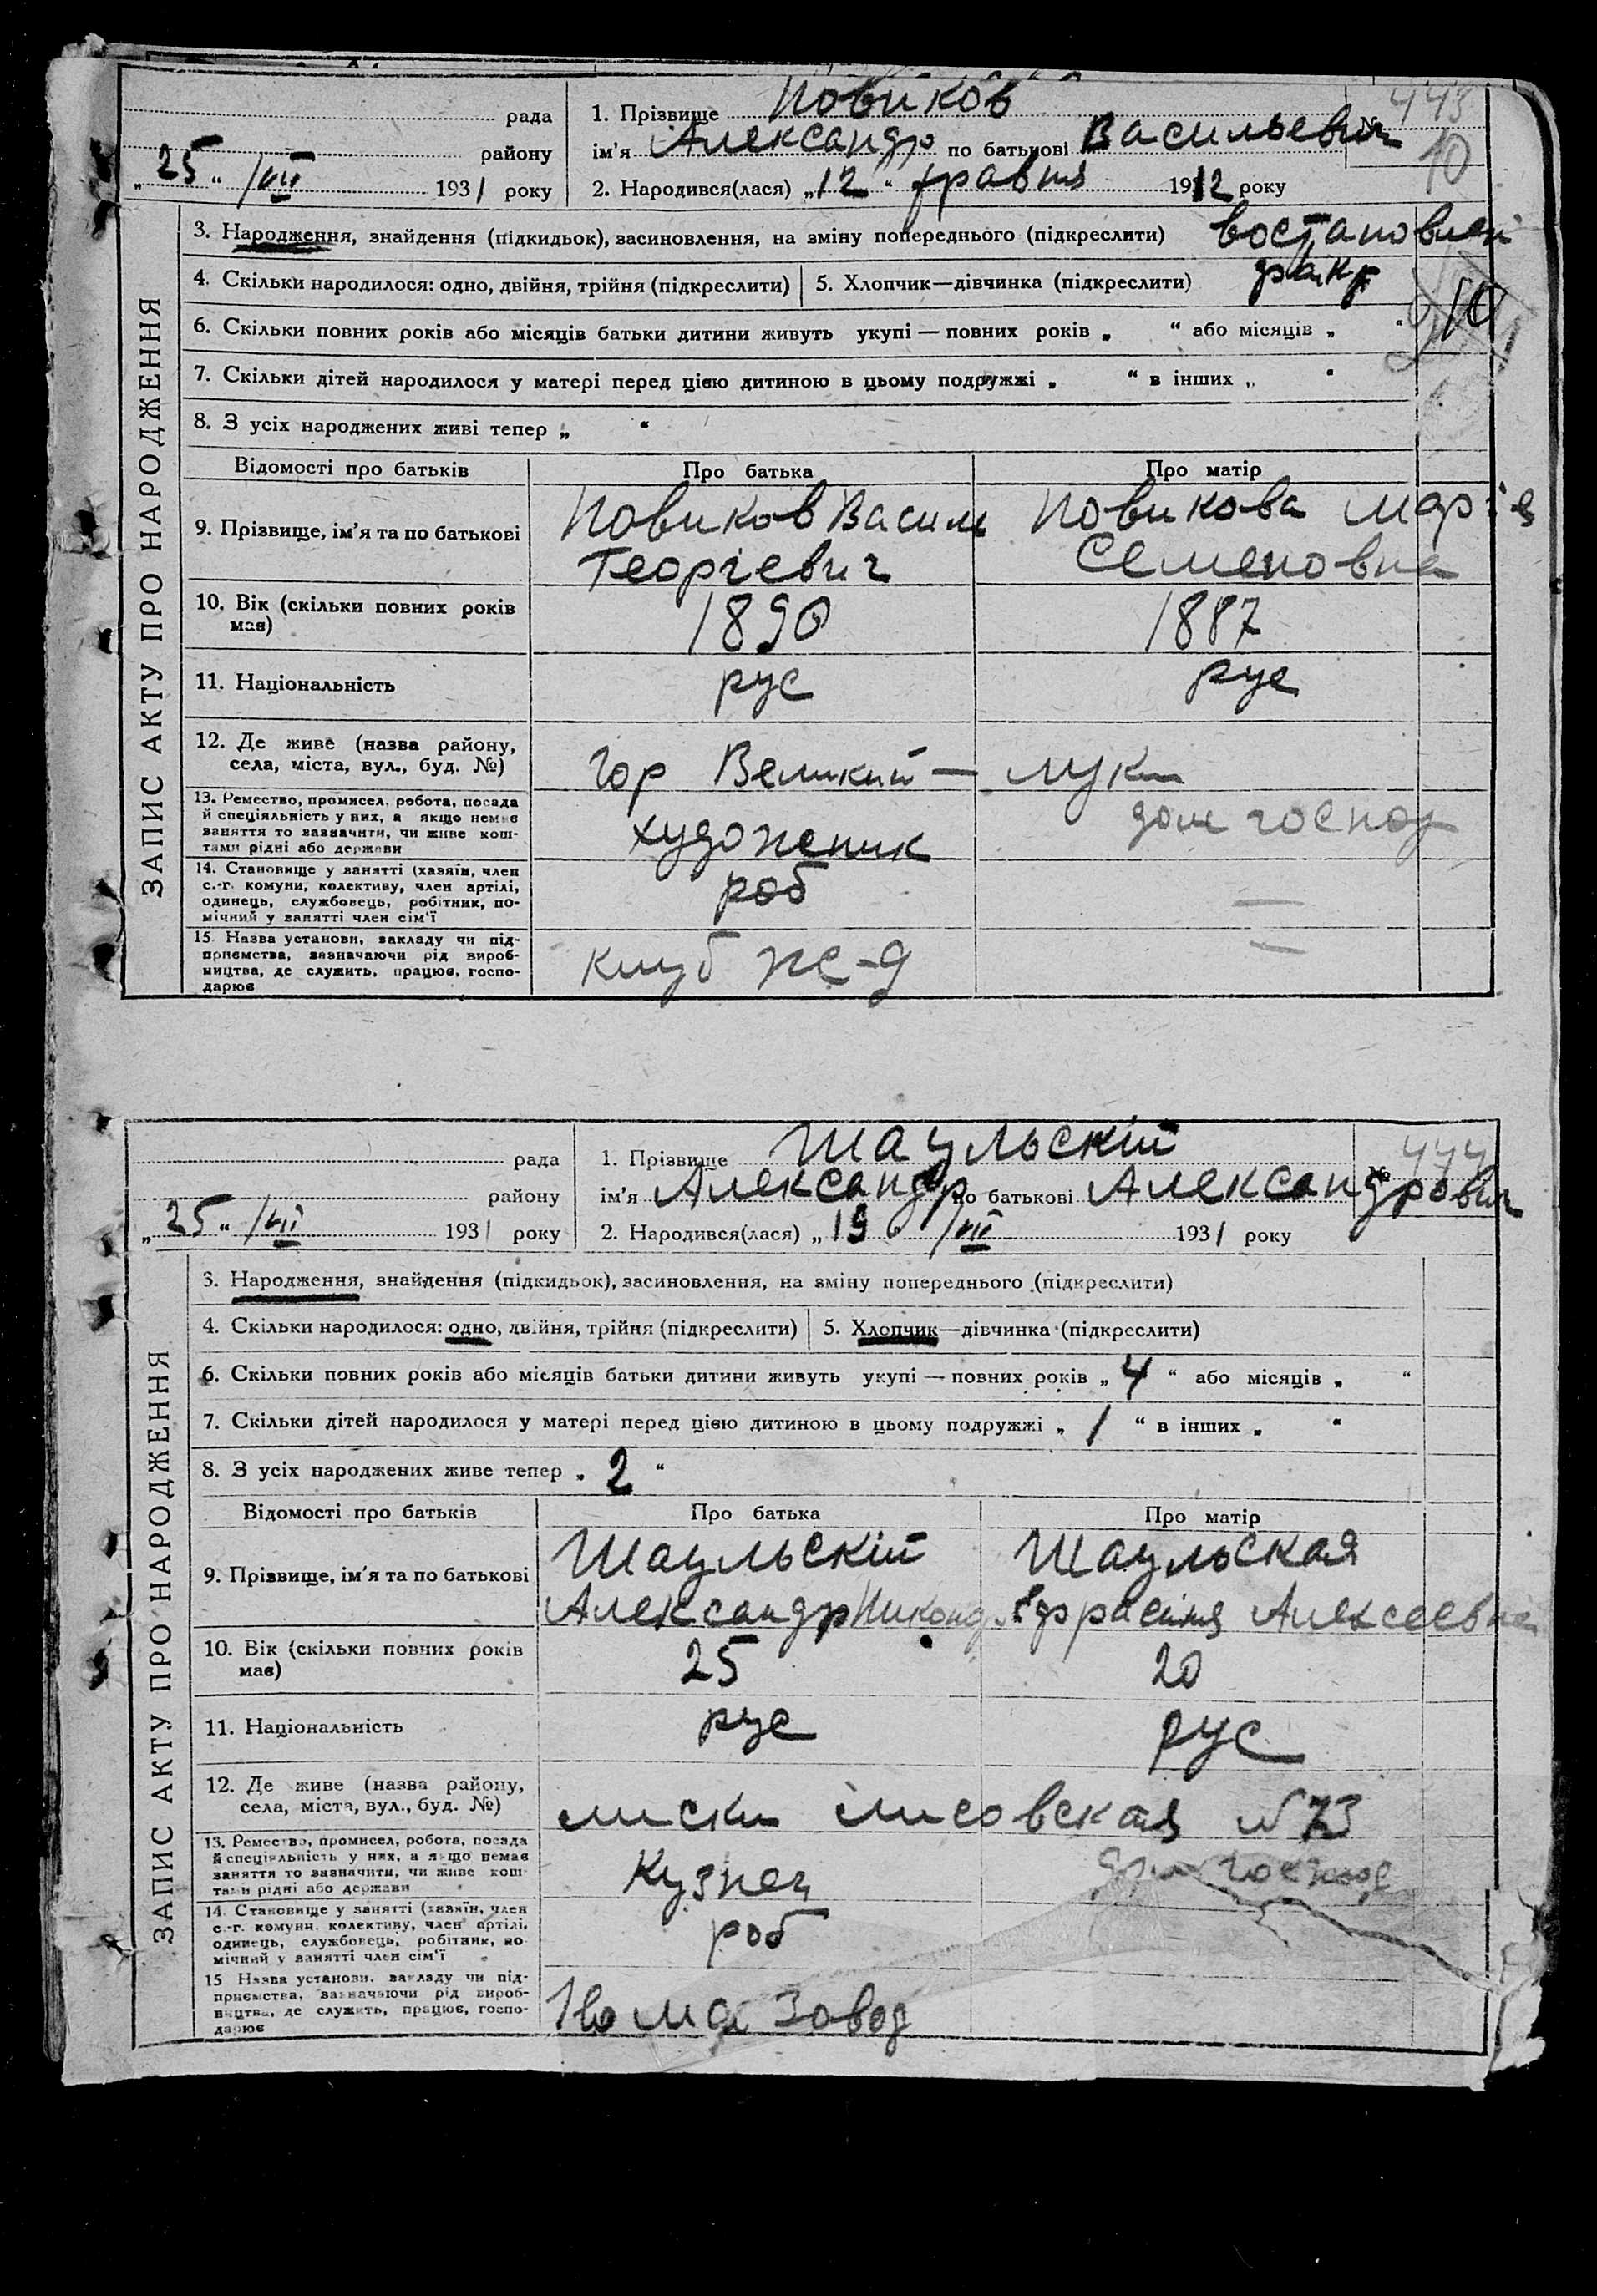 рада
району
„25“ /VII 1931 року
1. Прізвище Новиков
ім'я Александр по батькові Васильевич
2. Народився(лася) „12“ травня 1912 року
№ 443
10
ЗАПИС АКТУ ПРО НАРОДЖЕННЯ
3. Народження, знайдення (підкидьок), засиновлення, на зміну попереднього (підкреслити)
4. Скільки народилося: одно, двійня, трійня (підкреслити) 5. Хлопчик—дівчинка (підкреслити)
10
6. Скільки повних років або місяців батьки дитини живуть укупі — повних років „ “ або місяців „ “
7. Скільки дітей народилося у матері перед цією дитиною в цьому подружжі „ “ в інших „ “
8. З усіх народжених живі тепер „ “
Відомості про батьків Про батька Про матір
9. Прізвище, ім'я та по батькові
Новиков Васили Новикова Марія
Георгіевич Семеновна
10. Вік (скільки повних років
має)
1890 1887
11. Національність рус рус
12. Де живе (назва району,
села, міста, вул., буд. №)
гор Великий — луки
13. Ремество, промисел, робота, посада
й спеціяльність у них, а якщо немає
заняття то зазначити, чи живе кош-
тами рідні або держави
художеник дом господ
14. Становище у занятті (хазяїн, член
с.-г. комуни, колективу, член артілі,
одинець, службовець, робітник, по-
мічний у занятті член сім'ї
роб —
15. Назва установи, закладу чи під-
приємства, зазначаючи рід вироб-
ництва, де служить, працює, госпо-
дарює
клуб ж-д —
рада
району
„25“ /VII 1931 року
1. Прізвище Шаульскій
ім'я Александр по батькові Александрович
2. Народився(лася) „19 /VII 1931 року
№ 444
ЗАПИС АКТУ ПРО НАРОДЖЕННЯ
3. Народження, знайдення (підкидьок), засиновлення, на зміну попереднього (підкреслити)
4. Скільки народилося: одно, двійня, трійня (підкреслити) 5. Хлопчик—дівчинка (підкреслити)
6. Скільки повних років або місяців батьки дитини живуть укупі — повних років „ 4 “ або місяців „ “
7. Скільки дітей народилося у матері перед цією дитиною в цьому подружжі „ 1 “ в інших „ “
8. З усіх народжених живе тепер „ 2 “
Відомості про батьків Про батька Про матір
9. Прізвище, ім'я та по батькові
Шаульскій Шаульская
Александр Николд Алексеевна
10. Вік (скільки повних років
має)
25 20
11. Національність рус рус
12. Де живе (назва району,
села, міста, вул., буд. №)
лиски лисовская № 73
13. Ремество, промисел, робота, посада
й спеціяльність у них, а якщо немає
заняття то зазначити, чи живе кош-
тами рідні або держави
Кузнец дом господ
14. Становище у занятті (хазяїн, член
с.-г. комуни, колективу, член артілі,
одинець, службовець, робітник, по-
мічний у занятті член сім'ї
роб
15 Назва установи, закладу чи під-
приємства, зазначаючи рід вироб-
ництва, де служить, працює, госпо-
дарює
завод